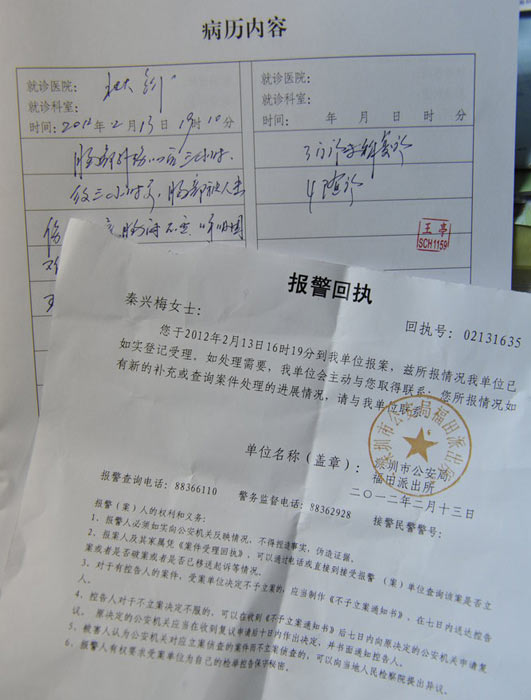 病历内容
就诊医院:
就诊科室:
时间: 2012 年 2 月 13 日 19 时 10 分
胸部外伤 三小时.
三小时 , 胸部被人击
伤
就诊医院:
就诊科室:
时间: 年 月 日 时 分
3
4
王亭
SCH1159
报警回执
回执号: 02131635
秦兴梅女士:
您于2012年2月13日16时19分到我单位报案, 兹所报情况我单位已
如实登记受理, 如处理需要, 我单位会主动与您取得联系; 您所报情况如
有新的补充或查询案件处理的进展情况, 请与我单位联系。
单位名称(盖章): 深圳市公安局
福田派出所
二〇一二年二月十三日
深圳市公安局福田派出所
报警查询电话: 88366110 警务监督电话: 88362928 接警民警警号:
报警(案)人的权利和义务:
1、报警人必须如实向公安机关反映情况, 不得捏造事实, 伪造证据。
2、报案人及其家属凭《案件受理回执》, 可以通过电话或直接到接受报警(案)单位查询该案是否立
案或者是否破案或者是否已移送起诉等情况。
3、对于有控告人的案件, 受案单位决定不予立案的, 应当制作《不予立案通知书》, 在七日内送达控告
人。
4、控告人对于不立案决定不服的, 可以在收到《不予立案通知书》后七日内向原决定的公安机关申请复
议。原决定的公安机关应当在收到复议申请后十日内作出决定, 并书面通知控告人。
5、被害人认为公安机关对应立案侦查的案件而不立案侦查的, 可以向当地人民检察院提出异议。
6、报警人有权要求受案单位为自己的检举控告保守秘密。